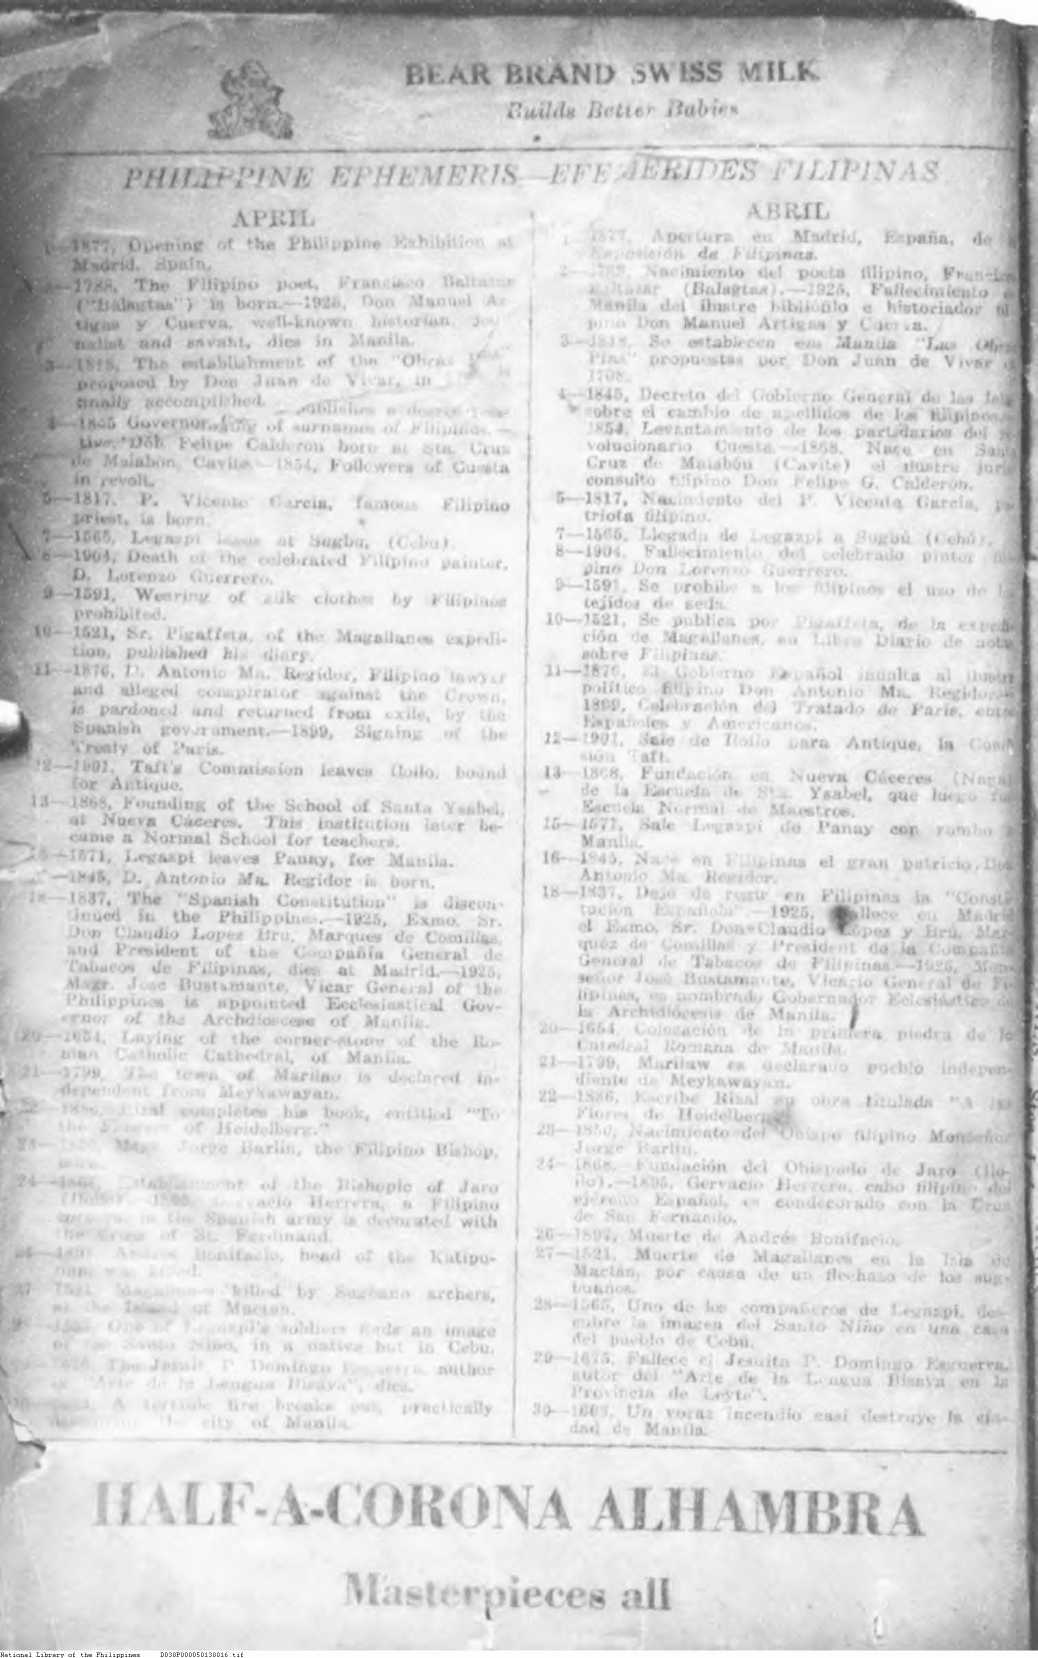 BEAR BRAND SWISS MILK
Builds Better Babies
PHILIPPINE EPHEMERIS—EFEMERIDES FILIPINAS
APRIL
1—1877, Opening of the Philippine Exhibition at
Madrid, Spain.
2—1788, The Filipino poet, Francisco Baltazar
("Balagtas") is born.—1925, Don Manuel Ar-
tigas y Cuerva, well-known historian, jour-
nalist and savant, dies in Manila.
The establishment of the "Obras
proposed by Don Juan de Vivar, in
finally accomplished.
publishes a decree
Governor of surnames of Filipinos.—
Don Felipe Calderon born at Sta. Cruz
de Malabon, Cavite.—1854, Followers of Cuesta
in revolt.
5—1817, P. Vicente Garcia, famous Filipino
priest, is born.
7—1565, Legazpi at Sugbu, (Cebu).
8—1904, Death of the celebrated Filipino painter,
D. Lorenzo Guerrero.
9—1591, Wearing of silk clothes by Filipinos
prohibited.
10—1521, Sr. Pigaffeta, of the Magallanes expedi-
tion, published his diary.
11—1876, D. Antonio Ma. Regidor, Filipino lawyer
and alleged conspirator against the Crown,
is pardoned and returned from exile, by the
Spanish government.—1899, Signing of the
Treaty of Paris.
12—1901, Taft's Commission leaves Iloilo, bound
for Antique.
13—1868, Founding of the School of Santa Ysabel,
at Nueva Caceres. This institution later be-
came a Normal School for teachers.
15—1571, Legazpi leaves Panay, for Manila.
—1845, D. Antonio Ma. Regidor is born.
18—1837, The "Spanish Constitution" is discon-
tinued in the Philippines.—1925, Exmo. Sr.
Don Claudio Lopez Bru, Marques de Comillas,
and President of the Compañia General de
Tabacos de Filipinas, dies at Madrid.—1925,
Msgr. Jose Bustamante, Vicar General of the
Philippines is appointed Ecclesiastical Gov-
ernor of the Archdiocese of Manila.
20—1654, Laying of the corner-stone of the Ro-
man Catholic Cathedral, of Manila.
21—1799, The town of Marilao is declared in-
dependent from Meykawayan.
22—1886, Rizal completes his book, entitled "To
the Flowers of Heidelberg."
23—1850, Msgr. Jorge Barlin, the Filipino Bishop,
24—1868, Establishment of the Bishopic of Jaro
(Iloilo).—1895, Gervacio Herrera, a Filipino
in the Spanish army is decorated with
the Cross of St. Ferdinand.
Andres Bonifacio, head of the Katipu-
nan, was killed.
27—1521, Magallanes killed by Sugbano archers,
at the Island of Mactan.
28—1565, One of Legazpi's soldiers finds an image
of the Santo Niño, in a native hut in Cebu.
The Jesuit P. Domingo Ezguerra, author
of "Arte de la Lengua Bisaya", dies.
A terrible fire breaks out, practically
the city of Manila.
ABRIL
1—1877, Apertura en Madrid, España, de
Exposición de Filipinas.
2—1788, Nacimiento del poeta filipino, Francisco
Baltazar (Balagtas).—1925, Fallecimiento
Manila del ilustre bibliófilo e historiador
pino Don Manuel Artigas y Cuerva.
3— Se establecen en Manila "Las Obras
Pías" propuestas por Don Juan de Vivar
1708.
4—1845, Decreto del Gobierno General de las Islas
sobre el cambio de apellidos de los filipinos.—
1854, Levantamiento de los partidarios del re-
volucionario Cuesta.—1868, Nace en Santa
Cruz de Malabón (Cavite) el ilustre juris-
consulto filipino Don Felipe G. Calderón.
5—1817, Nacimiento del P. Vicente García, pa-
triota filipino.
7—1565, Llegada de Legazpi a Sugbú (Cebú).
8—1904, Fallecimiento del celebrado pintor fili-
pino Don Lorenzo Guerrero.
9—1591, Se prohibe a los filipinos el uso de
tejidos de seda.
10—1521, Se publica por Pigaffeta, de la expedi-
ción de Magallanes, su Libro Diario de notas
sobre Filipinas.
11—1876, El Gobierno Español indulta al ilustre
político filipino Don Antonio Ma. Regidor.—
1899, Celebración del Tratado de Paris, entre
Españoles y Americanos.
12—1901, Sale de Iloilo para Antique, la Comi-
sión Taft.
13—1868, Fundación en Nueva Cáceres (Naga)
de la Escuela de Sta. Ysabel, que luego fué
Escuela Normal de Maestros.
15—1571, Sale Legazpi de Panay con rumbo a
Manila.
16—1845, Nace en Filipinas el gran patricio, Don
Antonio Ma. Regidor.
18—1837, Dejo de regir en Filipinas la "Consti-
tución Española".—1925, Fallece en Madrid
el Exmo. Sr. Don Claudio López y Brú, Mar-
quéz de Comillas y President de la Compañía
General de Tabacos de Filipinas.—1925, Mon-
señor José Bustamante, Vicario General de Fi-
lipinas, es nombrado Gobernador Eclesiástico de
la Archidiócesis de Manila.
20—1654, Colocación de la primera piedra de la
Catedral Romana de Manila.
21—1799, Marilaw es declarado pueblo indepen-
diente de Meykawayan.
22—1886, Escribe Rizal su obra titulada "A las
Flores de Heidelberg".
23—1850, Nacimiento del Obispo filipino Monseñor
Jorge Barlin.
24—1868, Fundación del Obispado de Jaro (Ilo-
ilo).—1895, Gervacio Herrera, cabo filipino del
ejército Español, es condecorado con la Cruz
de San Fernando.
26—1897, Muerte de Andrés Bonifacio.
27—1521, Muerte de Magallanes en la Isla de
Mactan, por causa de un flechazo de los sug-
buanos.
28—1565, Uno de los compañeros de Legazpi, des-
cubre la imagen del Santo Niño en una casa
del pueblo de Cebú.
29—1675, Fallece el Jesuita P. Domingo Ezguerra,
autor del "Arte de la Lengua Bisaya en la
Provincia de Leyte".
30—1603, Un voraz incendio casi destruye la ciu-
dad de Manila.
HALF-A-CORONA ALHAMBRA
Masterpieces all
National Library of the Philippines D038P000050138016.tif